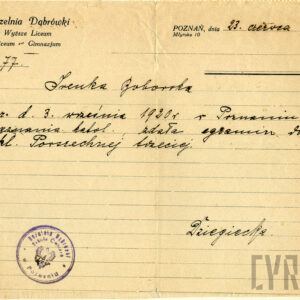 zelnia Dąbrówki
Wyższe Liceum
Liceum — Gimnazjum
POZNAŃ, dnia 23. czerwca
Młyńska 10
77.
Irenka Goborska
ur. d. 3. września 1930 r. w Poznaniu
wyznania katol. zdała egzamin do
kl. Powszechnej trzeciej
Dziegiecka
w Poznaniu
CYR